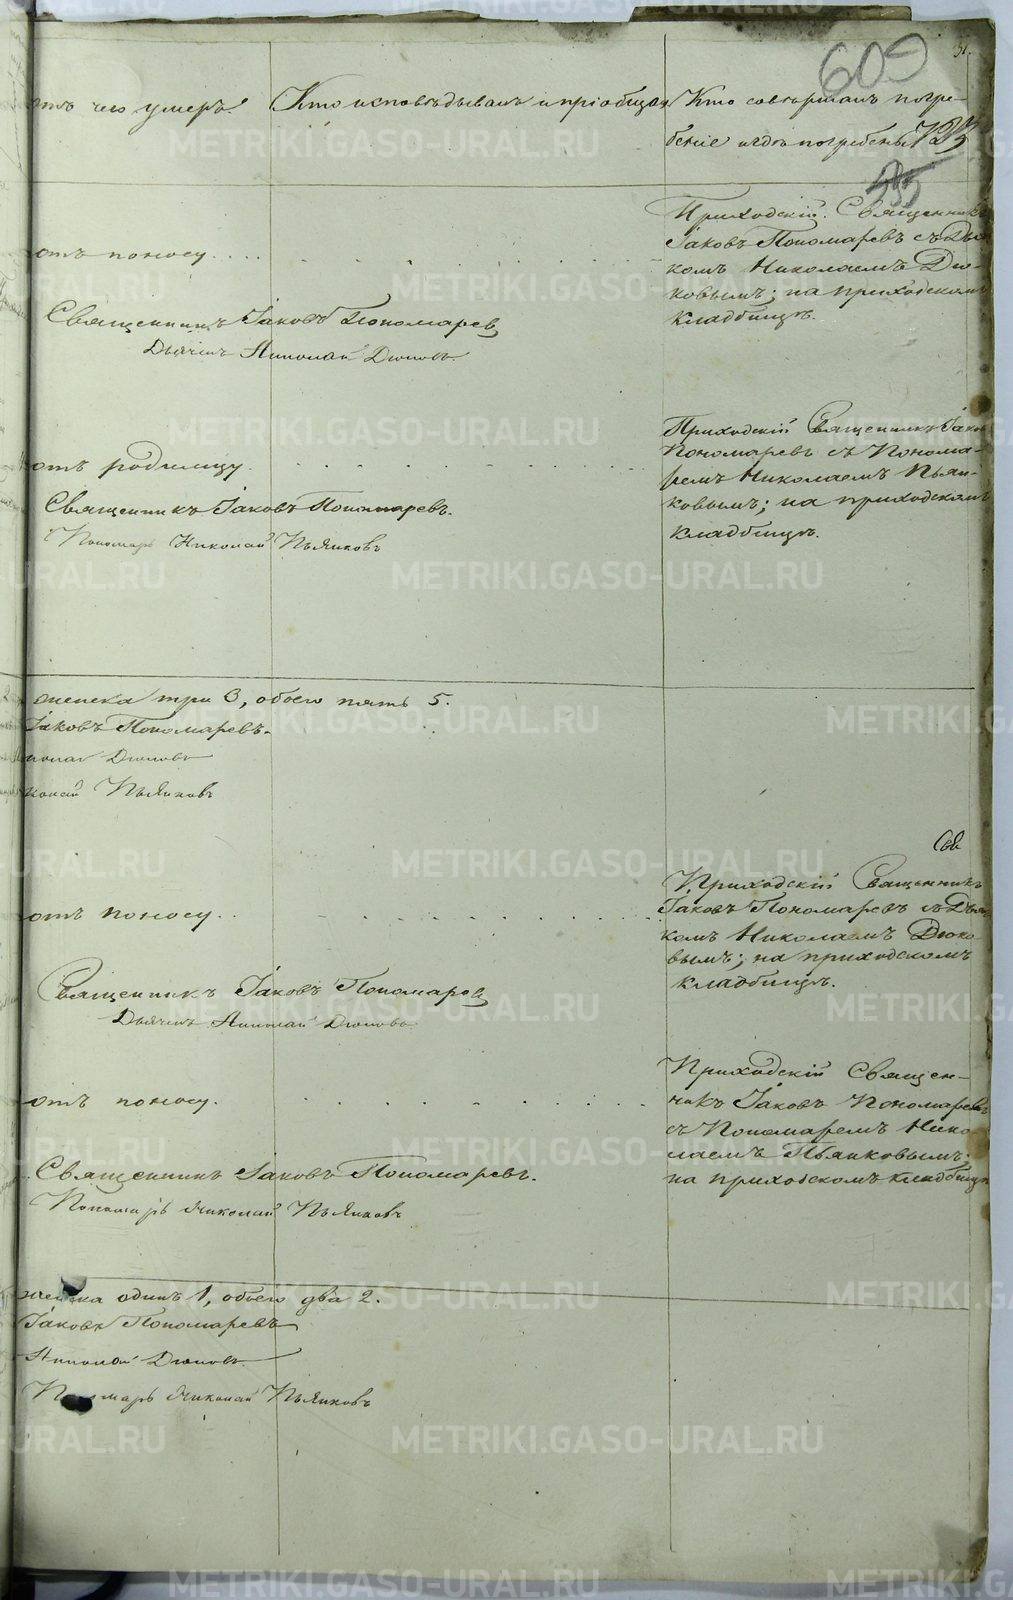 609
31.
отъ чего умеръ. Кто исповѣдывалъ и пріобщалъ Кто совершалъ погре-
беніе и гдѣ погребены
Приходскій Священникъ
Іаковъ Пономаревъ съ Дья
комъ Николаемъ Дю-
ковымъ; на приходскомъ
кладбищѣ.
отъ поносу
Священникъ Іаковъ Пономарев
Дьячекъ Николай Дюковъ
Приходскій Священникъ Іаков
Пономаревъ съ Понома-
ремъ Николаемъ Пьян-
ковымъ; на приходскомъ
кладбищѣ.
отъ родимцу
Священникъ Іаковъ Пономаревъ.
Пономарь Николай Пьянковъ
женска три 3, обоего пять 5.
Іаковъ Пономаревъ.
колай Дюковъ
колай Пьянковъ
Приходскій Священникъ
Іаковъ Пономаревъ съ Дья
комъ Николаемъ Дюко
вымъ; на приходскомъ
кладбищѣ.
отъ поносу
Священникъ Іаковъ Пономарев
Дьячекъ Николай Дюковъ
Приходскій Священ-
никъ Іаковъ Пономаревъ
съ Пономаремъ Нико
лаемъ Пьянковымъ;
на приходскомъ кладбищѣ
отъ поносу.
Священникъ Іаковъ Пономаревъ.
Пономарь Николай Пьянковъ
женска одинъ 1, обоего два 2.
Іаковъ Пономаревъ
Николай Дюковъ
Пономарь Николай Пьянковъ
METRIKI.GASO-URAL.RU